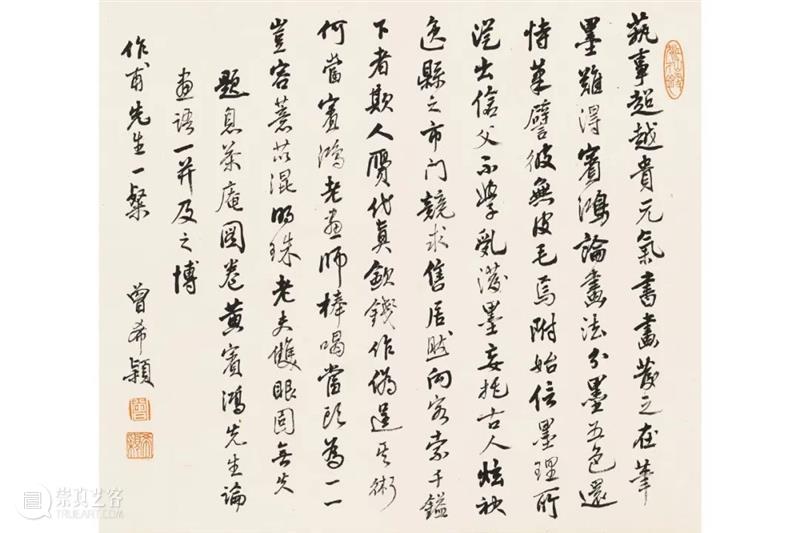 蓺事超越貴元氣書畫發之在筆
墨難得賓鴻論畫法分墨五色還
恃筆譬彼無皮毛焉附始信墨理所
從出傖父不學亂潑墨妄托古人炫秘
逸縣之市門競求售居然向客索千鎰
下者欺人贋代真款鍥作偽逞其術
何當賓鴻老畫師棒喝當頭為一一
豈容薏苡混明珠老夫雙眼固無失
題息茶庵圖卷黃賓鴻先生論
畫語一并及之博
作甫先生一粲
曾希穎
崇真艺客
TRUEART.COM